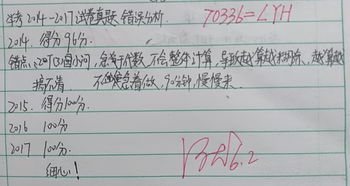 2014-2017试卷真题 错误分析
70336=LYH
2014. 得分96分.
错点、20题(3)小问,急于代数,不会整体计算,导致越算越扔,越算越
搞不清 不急着做,90分钟,慢慢来.
2015. 得分100分.
2016 100分.
2017 100分.
细心!
6.2